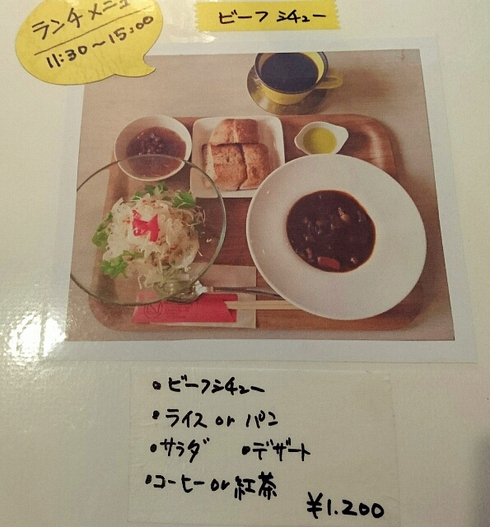 ランチメニュー
11:30~15:00
ビーフシチュー
・ビーフシチュー
・ライス or パン
・サラダ ・デザート
・コーヒー or 紅茶
¥1.200